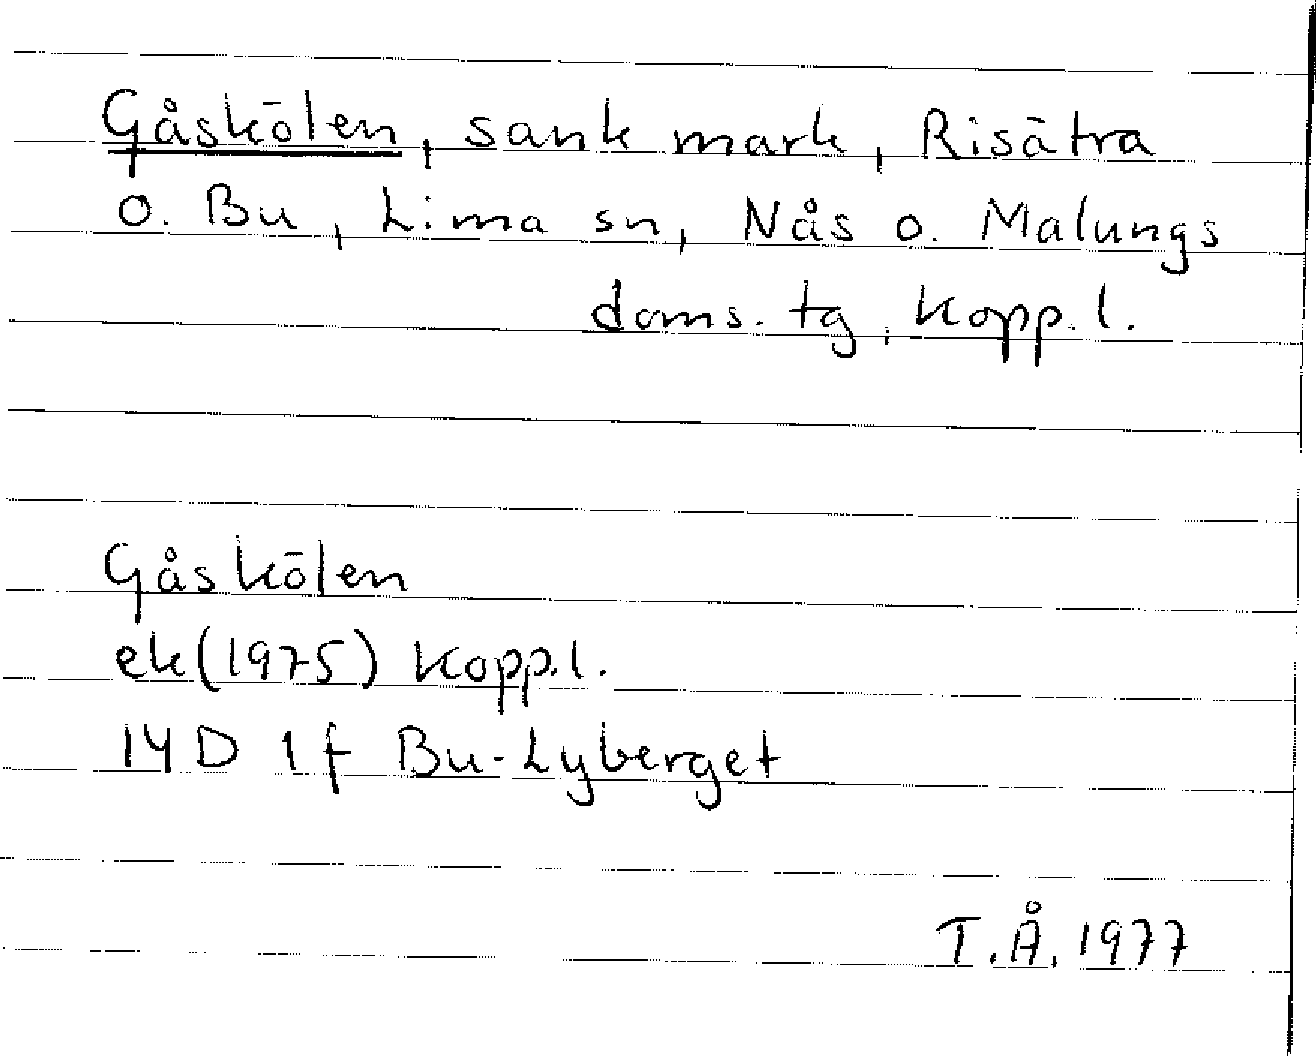 Gåskölen, sank mark, Risätra
o. Bu, Lima sn, Nås o. Malungs
doms. tg, Kopp. l.
Gåskölen
ek (1975) Kopp. l.
14 D 1 f Bu-Lyberget
T. Å. 1977